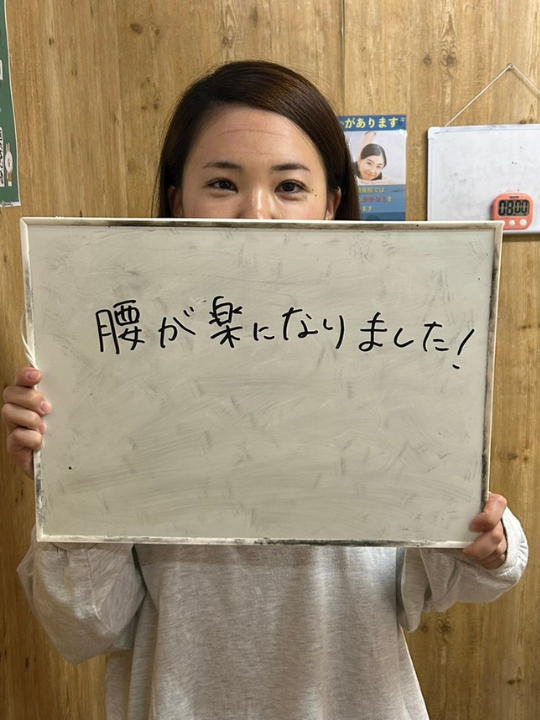 腰が楽になりました!
があります
08:00